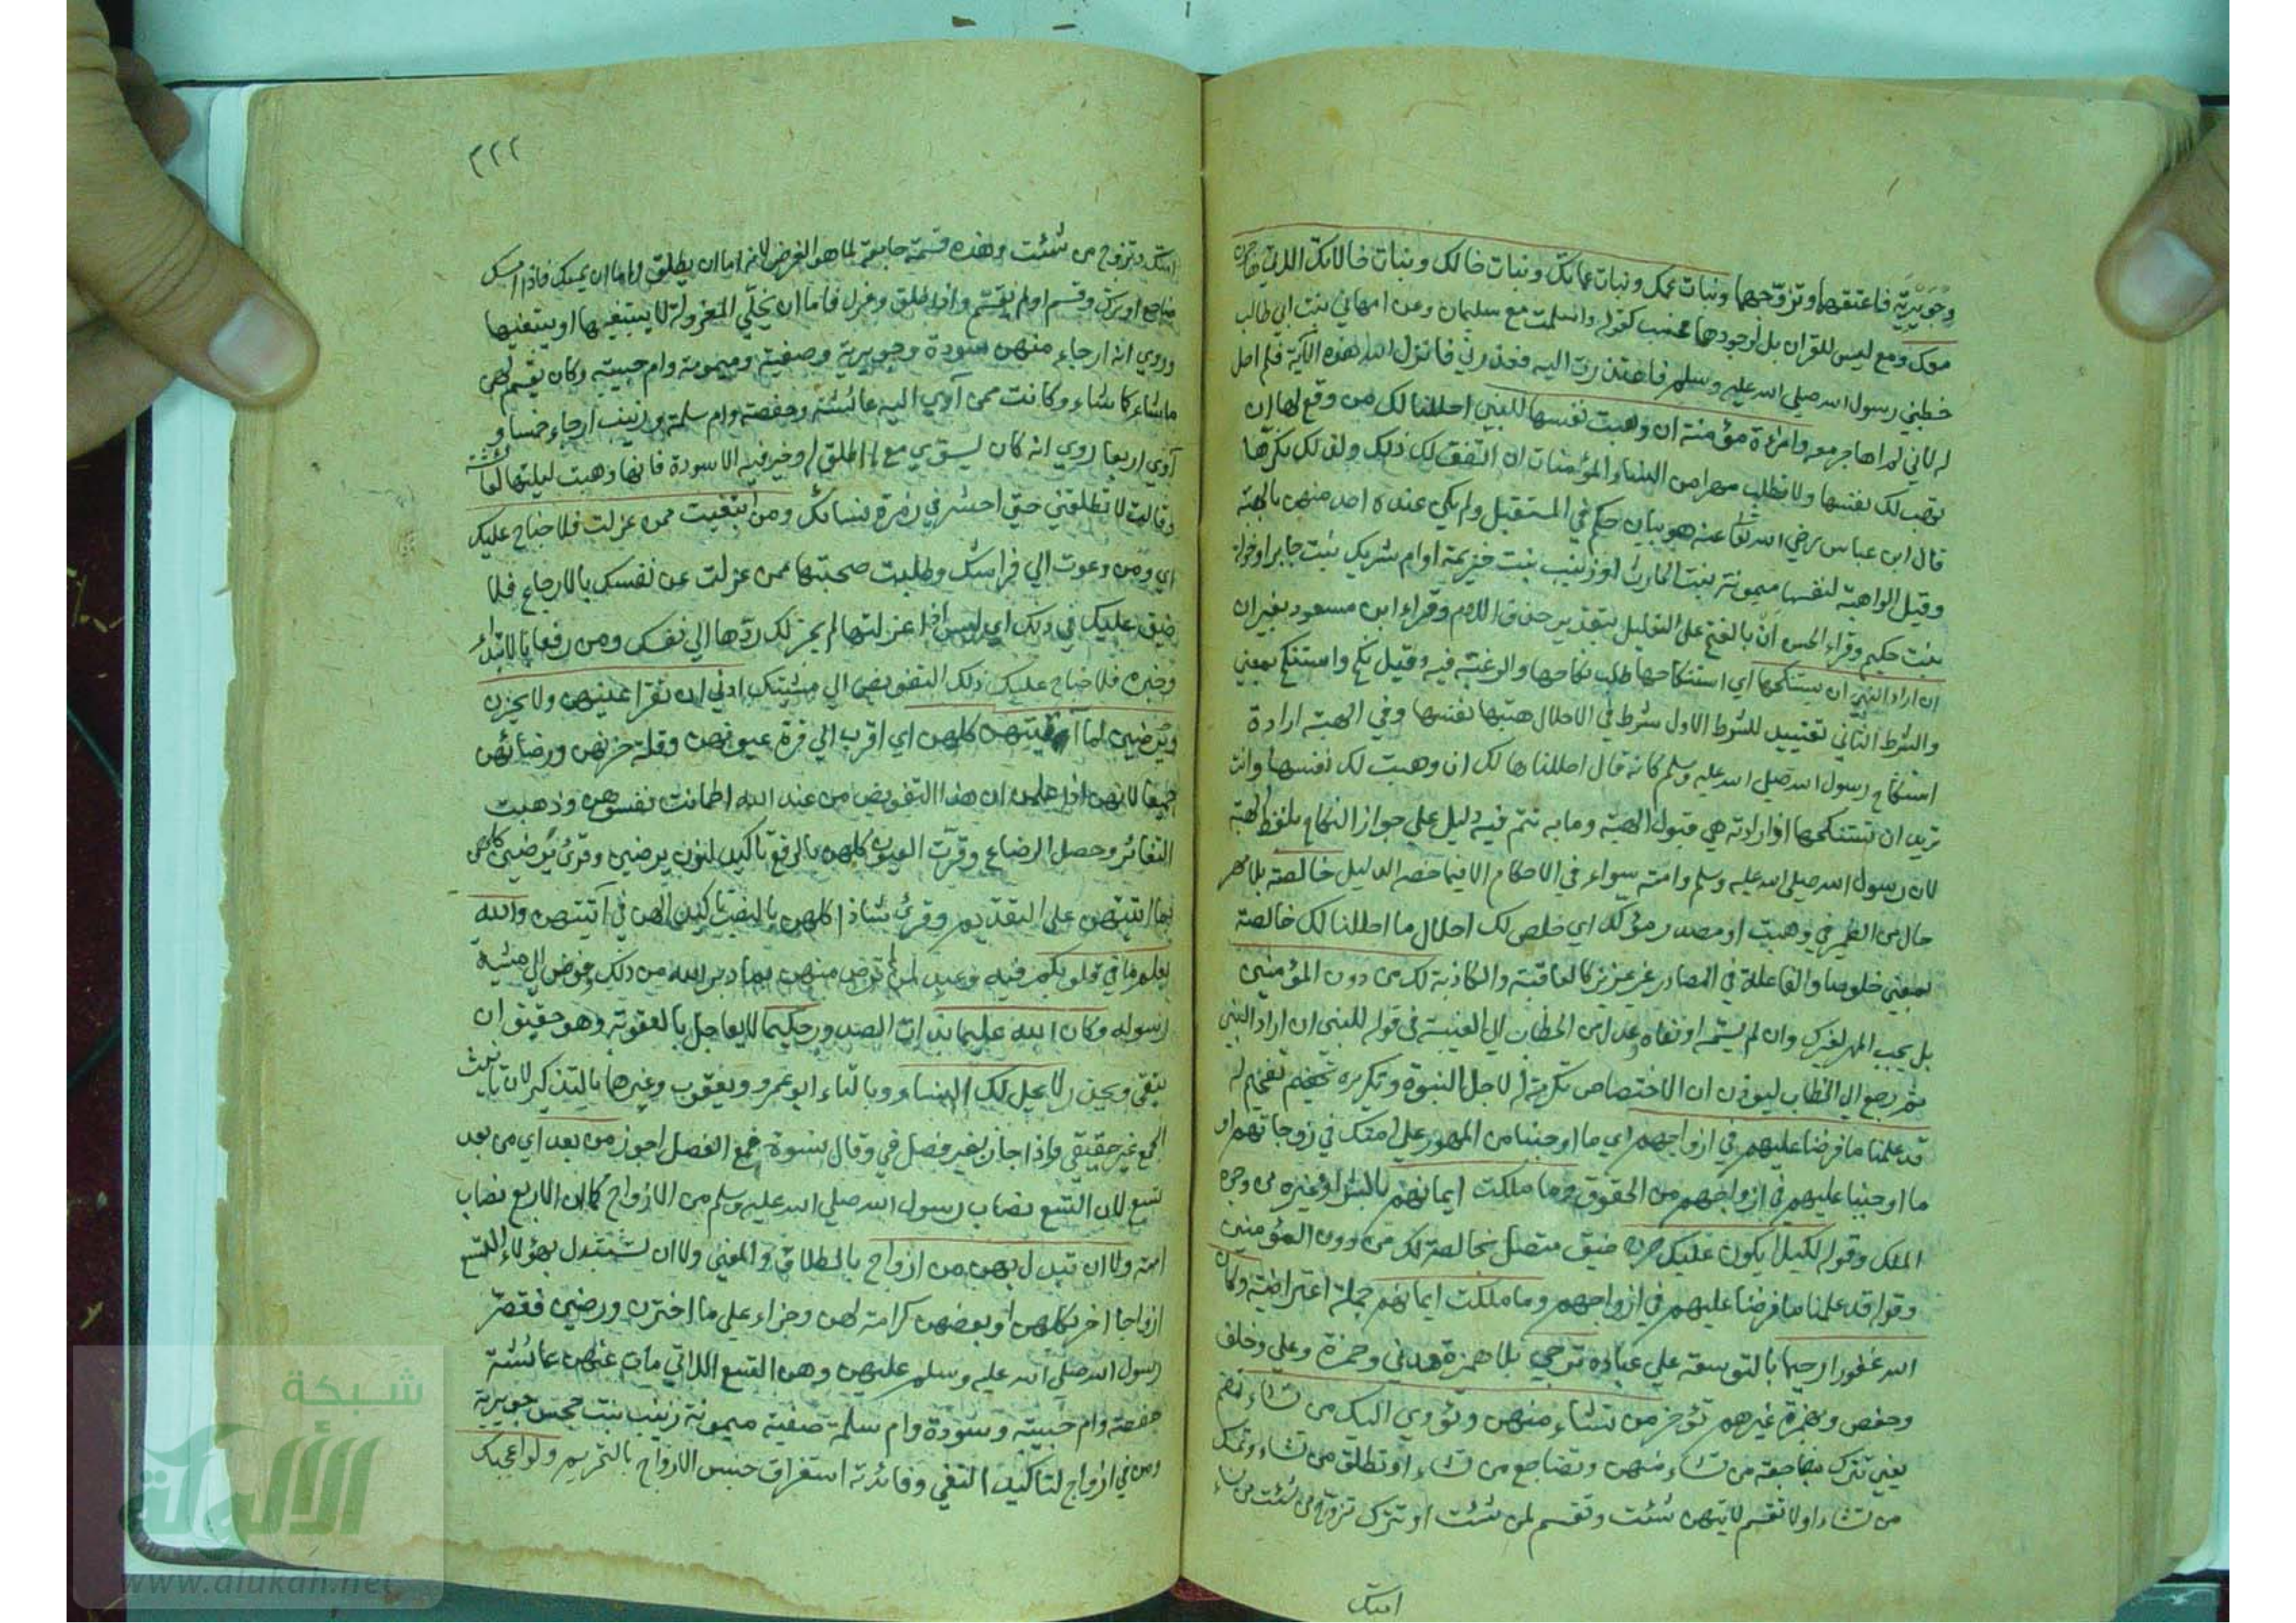 وجويرية فاعتقها وتزوجها وبنات عمك وبنات عماتك وبنات خالك وبنات خالاتك اللاتي هاجرن
معك ومع ليس للقران بل لوجودها فحسب كقوله واسلمت مع سليمان وعن ام هاني بنت ابي طالب
خطبني رسول الله صلي الله عليه وسلم فاعتذرت اليه فعذرني فانزل الله هذه الآية فلم احل
له لاني لم اهاجر معه وامرءة مؤمنة ان وهبت نفسها للنبي احللنا لك من وقع لها ان
توهب لك نفسها ولا تطلب مهرا من النساء المؤمنات ان اتفق لك ذلك ولذلك نكرها
قال ابن عباس رضي الله تعا عنه هو بيان حكم في المستقبل ولم يكن عنده احد منهن بالهبة
وقيل الواهبة نفسها ميمونة بنت الحارث او زينب بنت خزيمة او ام شريك بنت جابر او خولة
بنت حكيم وقراء الحسن ان بالفتح علي التعليل بتقدير حذف اللام وقراء ابن مسعود بغير ان
ان اراد النبي ان يستنكحها اي استنكاحها طلب نكاحها والرغبة فيه وقيل نكح واستنكح بمعني
والشرط الثاني تقييد للشرط الاول شرط في الاحلال هبتها نفسها وفي الهبة ارادة
استنكاح رسول الله صلي الله عليه وسلم كانه قال احللناها لك ان وهبت لك نفسها وانت
تريد ان تستنكحها اذ ارادته هي قبول الهبة وما به تتم فيه دليل علي جواز النكاح بلفظ الهبة
لان رسول الله صلي الله عليه وسلم وامته سواء في الاحكام الا فيما خصه الدليل خالصة بلا مهر
حال من الضمير في وهبت او مصدر مؤكد اي خلص لك احلال ما احللنا لك خالصة
بمعني خلوصا والفاعلة في المصادر غير عزيز كالعاقبة والكاذبة لك من دون المؤمنين
بل يجب المهر لغيرك وان لم يسمه او نفاه عدل من الخطاب الي الغيبة في قوله للنبي ان اراد النبي
ثم رجع الي الخطاب ليؤذن ان الاختصاص تكرمة له لاجل النبوة وتكريره تفخيم له
قد علمنا ما فرضنا عليهم في ازواجهم اي ما اوجبنا من المهور علي امتك في زوجاتهم او
ما اوجبنا عليهم في ازواجهم من الحقوق وما ملكت ايمانهم بالشراء وغيره من وجوه
الملك وقوله لكيلا يكون عليك حرج ضيق متصل بخالصة لك من دون المؤمنين
وقوله قد علمنا ما فرضنا عليهم في ازواجهم وما ملكت ايمانهم جملة اعتراضية وكان
الله غفورا رحيما بالتوسعة علي عباده ترجي بلا همزة مدني وحمزة وعلي وخلف
وحفص وبهمزة غيرهم تؤخر من تشاء منهن وتؤوي اليك من تشاء تضم
يعني تترك مضاجعة من تشاء منهن وتضاجع من تشاء او تطلق من تشاء وتمسك
من تشاء او لا تقسم لايتهن شئت وتقسم لمن شئت او تترك تزوج من شئت من نساء
امتك
٣٢٢
امتك وتزوج من شئت وهذه قسمة جامعة لما هو الغرض لانه اما ان يطلق واما ان يمسك فاذا امسك
ضاجع او ترك وقسم او لم يقسم واذا طلق وعزل فاما ان يخلي المعزولة لا يبتغيها او يبتغيها
وروي انه ارجاء منهن سودة وجويرية وصفية وميمونة وام حبيبة وكان يقسم لهن
ما شاء كما شاء وكانت ممن آوي اليه عائشة وحفصة وام سلمة وزينب ارجاء خمسا و
آوي اربعا روي انه كان يسوي مع ما اطلق له وخير فيه الا سودة فانها وهبت ليلتها لعائشة
وقالت لا تطلقني حتي احشر في زمرة نسائك ومن ابتغيت ممن عزلت فلا جناح عليك
اي ومن دعوت الي فراشك وطلبت صحبتها ممن عزلت عن نفسك بالارجاع فلا
ضيق عليك في ذلك اي ليس اذا عزلتها لم يجز لك ردها الي نفسك ومن رفع بالابتداء
وخبره فلا جناح عليك ذلك التفويض الي مشيئتك ادني ان تقر اعينهن ولا يحزن
ويرضين بما آتيتهن كلهن اي اقرب الي قرة عيونهن وقلة حزنهن ورضائهن
جميعا لانهن اذا علمن ان هذا التفويض من عند الله اطمانت نفوسهن وذهبت
التغائر وحصل الرضاء وقرت العيون كلهن بالرفع تاكيد لنون يرضين وقرئ ويرضين كلهن
بما آتيتهن علي التقديم وقرئ شاذا كلهن بالنصب تاكيد الهن في آتيتهن والله
يعلم ما في قلوبكم فيه وعيد لمن لم ترض منهن بما دبر الله من ذلك وفوض الي مشية
رسوله وكان الله عليما بذات الصدور حكيما لا يعاجل بالعقوبة وهو حقيق ان
يتقي ويحذر لا يحل لك النساء وبالتاء ابو عمرو ويعقوب وغيرهما بالتذكير لان تانيث
الجمع غير حقيقي واذا جاز بغير فصل في وقال نسوة فمع الفصل اجوز من بعد اي من بعد
تسع لان التسع نصاب رسول الله صلي الله عليه وسلم من الازواج كما ان الاربع نصاب
امته ولا ان تبدل بهن من ازواج بالطلاق والمعني ولا ان تستبدل بهؤلاء التسع
ازواجا اخر بكلهن او بعضهن كرامة لهن وجزاء علي ما اخترن ورضين فقصر
رسول الله صلي الله عليه وسلم عليهن وهن التسع اللاتي مات عنهن عائشة
حفصة وام حبيبة وسودة وام سلمة صفية ميمونة زينب بنت جحش جويرية
ومن في ازواج لتاكيد النفي وفائدته استغراق جنس الازواج بالتحريم ولو اعجبك
شبكة
الألوكة
www.alukah.net